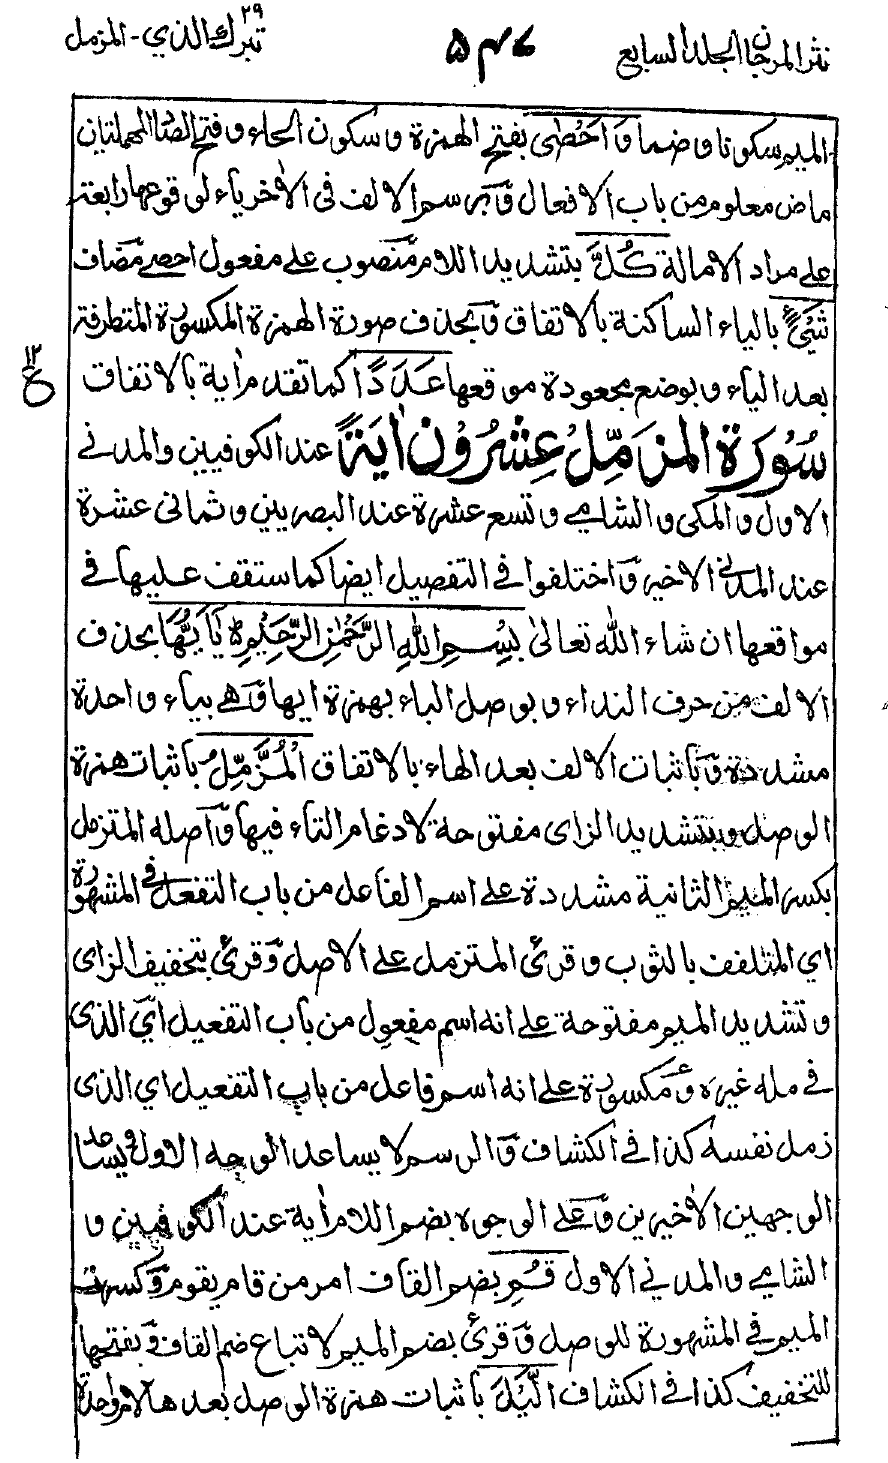 نثر المرجان الجلد السابع
۵۴۶
تبرك الذي ۲۹ - المزمل
الميم سكونا وضما وَاَحْصٰى بفتح الهمزة وسكون الحاء وفتح الصاد المهملتين
ماض معلوم من باب الافعال وبرسم الالف في الاٰخر ياء لوقوعها رابعة
على مراد الامالة كُلَّ بتشديد اللام منصوب على مفعول احصى مضاف
شَیْءٍ بالياء الساكنة بالاتفاق وبحذف صورة الهمزة المكسورة المتطرفة
بعد الياء وبوضع مجعودة موقعها عَدَدًا كما تقدم اٰية بالاتفاق
۱۲
ع
سُوْرَةُ المزَمِّلُ عِشْرُوْنَ اٰيَةً عند الكوفيين والمدني
الاول والمكي والشامي وتسع عشرة عند البصريين وثماني عشرة
عند المدني الاخير واختلفوا في التفصيل ايضا كما ستقف عليها في
مواقعها ان شاء الله تعالىٰ بِسْمِ اللّٰهِ الرَّحْمٰنِ الرَّحِيْمِ يٰۤاَيُّهَا بحذف
الالف من حرف النداء وبوصل الياء بهمزة ايها وهي بياء واحدة
مشددة وباثبات الالف بعد الهاء بالاتفاق الْمُزَّمِّلُ باثبات همزة
الوصل وبتشديد الزاى مفتوحة لادغام التاء فيها واصله المتزمل
بكسر الميم الثانية مشددة على اسم الفاعل من باب التفعل في المشهورة
اي المتلفف بالثوب وقرئ المتزمل على الاصل وقرئ بتخفيف الزاى
وتشديد الميم مفتوحة على انه اسم مفعول من باب التفعيل اي الذى
زمله غيره ومكسورة على انه اسم فاعل من باب التفعيل اي الذى
زمل نفسه كذا في الكشاف والرسم لا يساعد الوجه الاول ويساعد
الوجهين الاٰخيرين وعلى الوجوه بضم اللام اٰية عند الكوفيين و
الشامي والمدني الاول قُمِ بضم القاف امر من قام يقوم وكسرت
الميم في المشهورة للوصل وقرئ بضم الميم لاتباع ضم القاف وبفتحها
للتخفيف كذا في الكشاف الَّيْلَ باثبات همزة الوصل بعدها لام واحدة